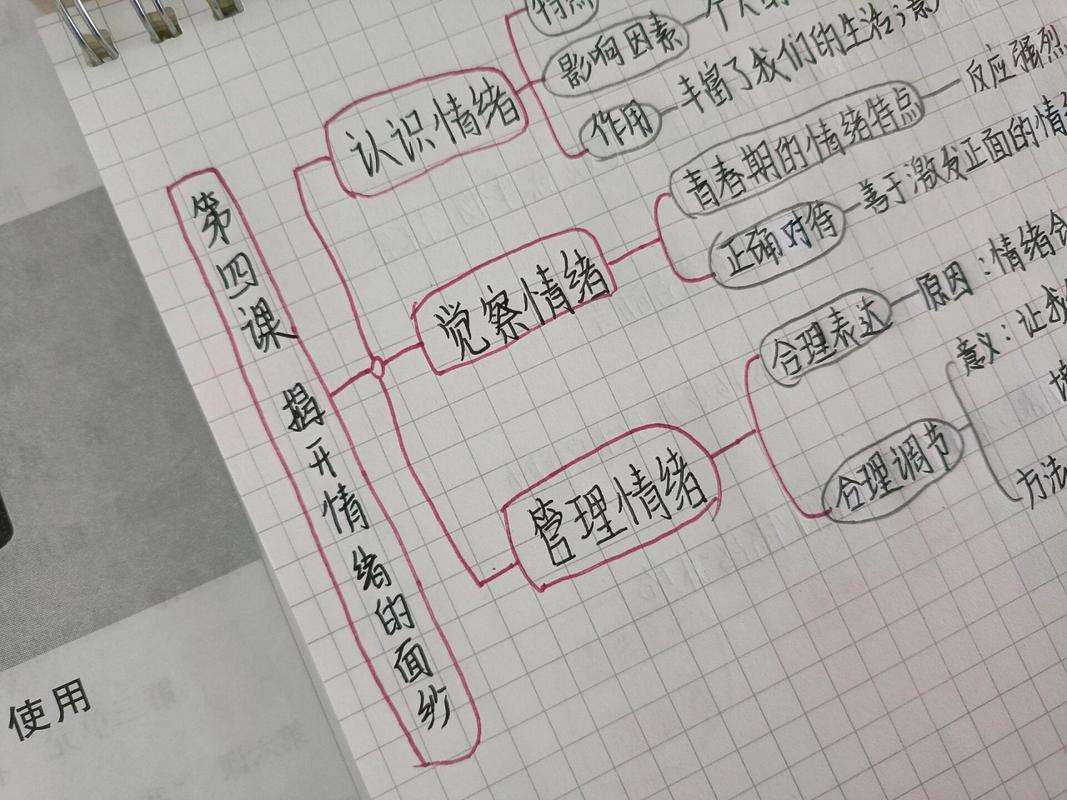 第四课 揭开情绪的面纱
认识情绪
影响因素
作用
丰富了我们的生活;
觉察情绪
青春期的情绪特点
反应强烈
正确对待
善于激发正面的情
管理情绪
合理表达
原因:情绪会
合理调节
意义:让我
方法
使用